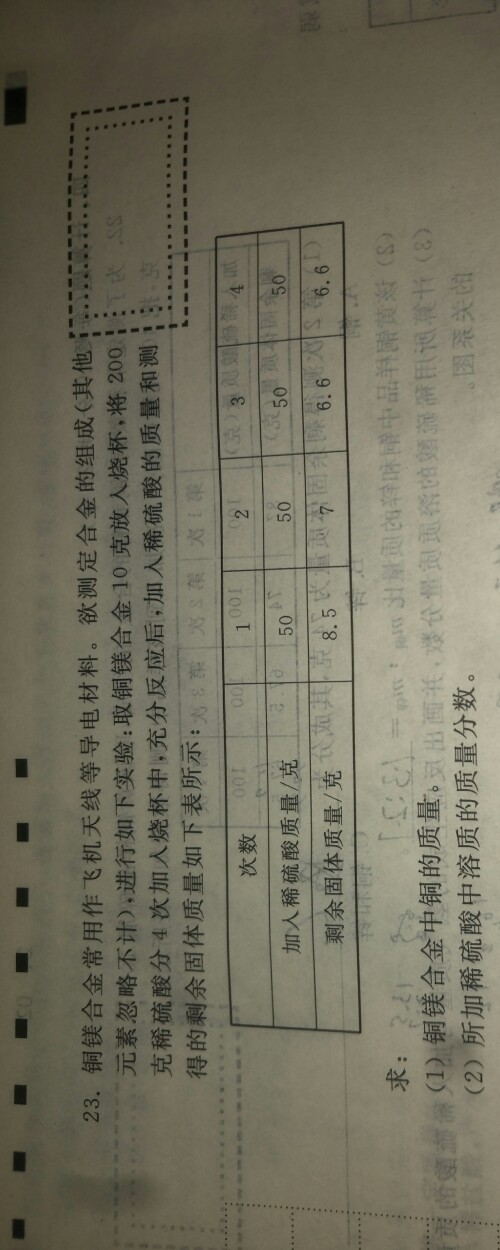 23. 铜镁合金常用作飞机天线等导电材料。欲测定合金的组成(其他
元素忽略不计),进行如下实验:取铜镁合金10克放入烧杯,将200
克稀硫酸分4次加入烧杯中,充分反应后,加入稀硫酸的质量和测
得的剩余固体质量如下表所示:
次数 1 2 3 4
加入稀硫酸质量/克 50 50 50 50
剩余固体质量/克 8.5 7 6.6 6.6
求:
(1) 铜镁合金中铜的质量。
(2) 所加稀硫酸中溶质的质量分数。